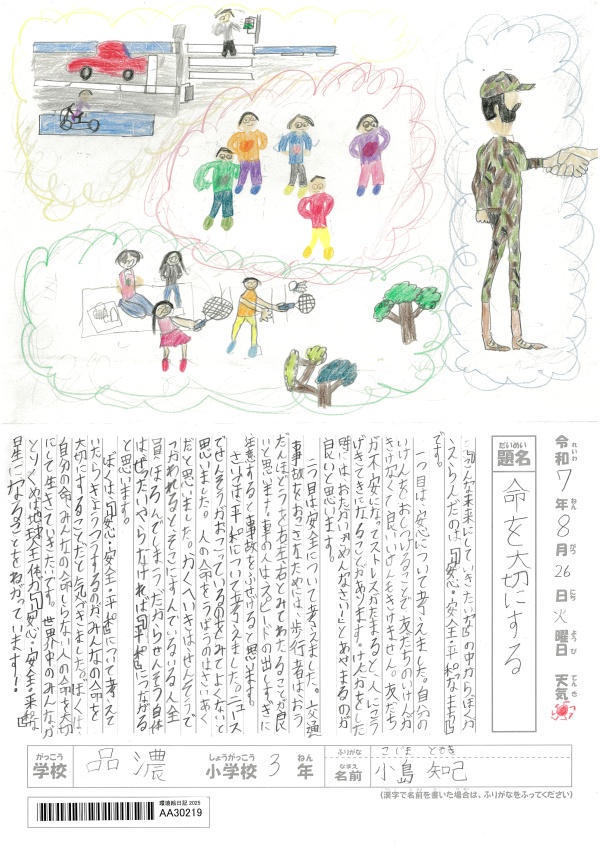 令和7年8月26日火曜日 天気
れいわ ねん がつ にち ようび てんき
だいめい
題名
命を大切にする
「こんな未来にしていきたいな」の中からぼくが
えらんだのは「安心・安全・平和なまち」
です。
一つ目は、安心について考えました。自分の
いけんをおしつけることで友だちのいけんが
きけなくて良いいけんもきけません。友だち
が不安になってストレスがたまると、人にこう
げきてきになることがあります。けんかをした
時には、おたがい「ごめんなさい！」とあやまるのが
良いと思います。
二つ目は安全について考えました。交通
事故をおこさないためには、歩行者はおう
だんほどうを右左右とみてわたることが良
いと思います。車の人はスピードの出しすぎに
注意すると事故をふせげると思います。
さいごは、平和について考えました。ニュース
でせんそうがおこっているのをみてよくないと
思いました。人の命をうばうのはさいあく
だと思いました。かくへいきは、せんそうで
つかわれるとそこにすんでいるいる人全
員ほろんでしまうだからせんそう自体
はぜったいやらなければ「平和」につながる
と思います。
ぼくは、「安心・安全・平和」について考えて
いたらきょうつうするのがみんなの命を
大切にすることだと気づきました。ぼくは、
自分の命、みんなの命、しらない人の命を大切
にして生きていきたいです。世界中のみんなが
とりくめば地球全体が「安心・安全・平和な
星」になることをねがっています！
がっこう
学校
品濃
しょうがっこう
小学校
3
ねん
年
ふりがな
こじま ともき
なまえ
名前
小島 知己
(漢字で名前を書いた場合は、ふりがなをふってください)
環境絵日記 2025
AA30219